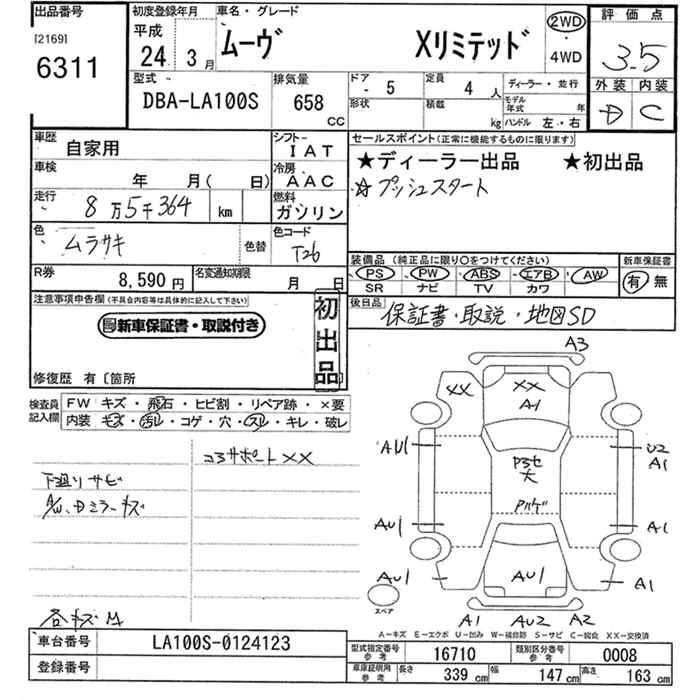 出品番号
[2169]
6311
初度登録年月
平成
24年3月
車名・グレード
ムーヴ Xリミテッド
2WD
・
4WD
評価点
3.5
外装 内装
D C
型式
DBA-LA100S
排気量
658
CC
ドア
- 5
定員
4 人
形状
積載
kg
ディーラー・並行
モデル年式 年
ハンドル 左・右
車歴
自家用
シフト
IAT
車検
年 月( 日)
冷房
AAC
走行
8万5千364 km
燃料
ガソリン
色
ムラサキ
色替
色コード
T26
R券
8,590円
名変通知期限
月 日
セールスポイント(正常に機能するものに限ります)
★ディーラー出品 ★初出品
☆プッシュスタート
装備品(純正品に限り○をつけてください)
PS PW ABS エアB AW
SR ナビ TV カワ
新車保証書
有・無
後日品
保証書・取説・地図SD
注意事項申告欄(不具合内容等は具体的に記入して下さい)
新車保証書・取説付き
初出品
修復歴 有〔箇所
検査員記入欄
FW キズ・飛石・ヒビ割・リペア跡・×要
内装 キズ・汚レ・コゲ・穴・スレ・キレ・破レ
コアサポートXX
下廻りサビ
A/W、Dミラーキズ
各キズ
A3
XX
XX
A1
AU1
U2
A1
大
AU1
A1
AU1
AU1
A1
スペア
A1 AU2 A2
A-キズ E-エクボ U-凹み W-補修跡 S-サビ C-腐食 XX-交換済
車台番号
LA100S-0124123
登録番号
型式指定番号 参考
16710
類別区分番号 参考
0008
車庫証明用 参考
長さ 339 cm
幅 147 cm
高さ 163 cm